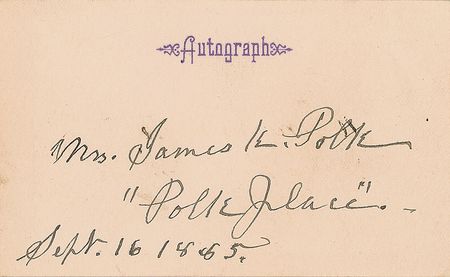 Autograph
Mrs. James K. Polk
"Polk Place".
Sept. 16 1885.